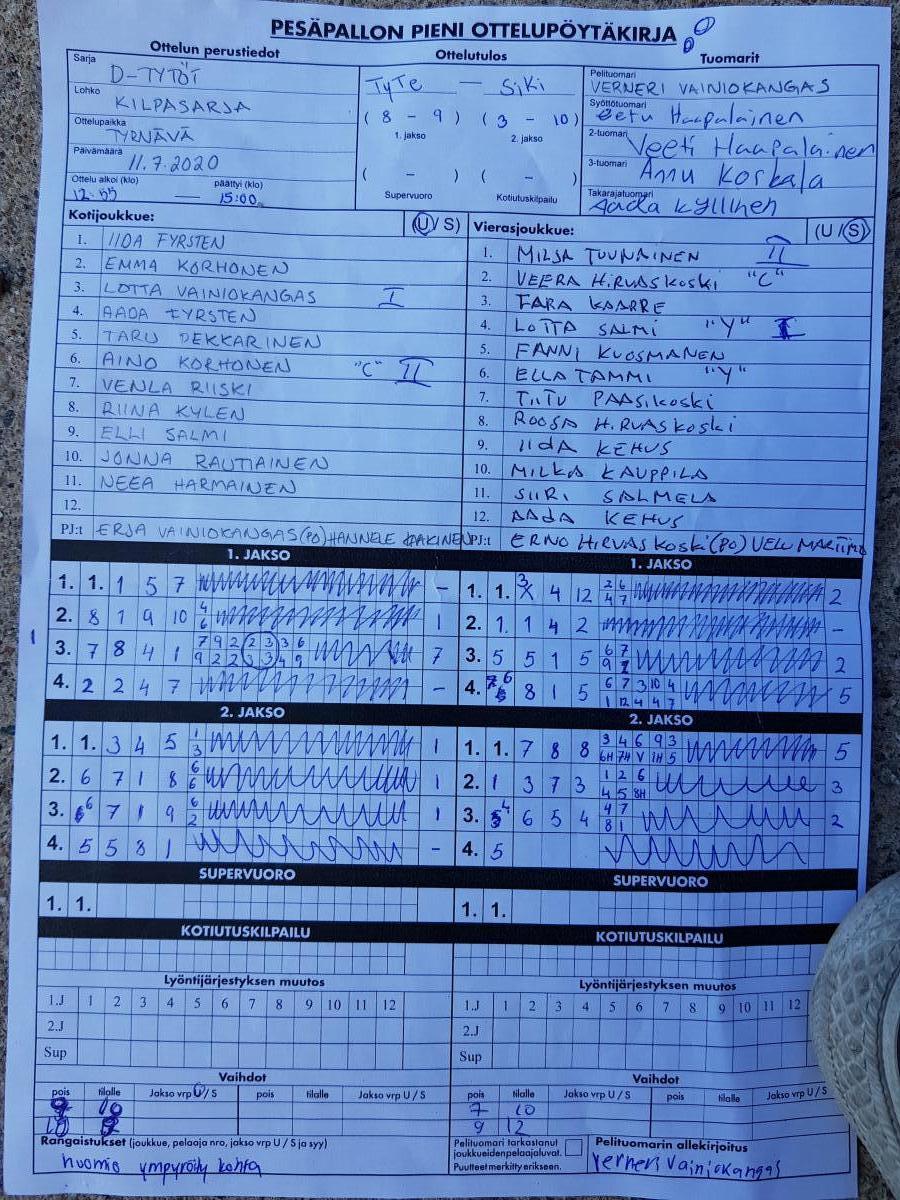 PESÄPALLON PIENI OTTELUPÖYTÄKIRJA
Ottelun perustiedot Ottelutulos Tuomarit
Sarja
D-TYTÖT
Lohko
KILPASARJA
Ottelupaikka
TYRNÄVÄ
Päivämäärä
11.7.2020
Ottelu alkoi (klo) päättyi (klo)
12.55 — 15:00
TyTe — SiKi
( 8 - 9 ) ( 3 - 10 )
1. jakso 2. jakso
( - ) ( - )
Supervuoro Kotiutuskilpailu
Pelituomari
VERNERI VAINIOKANGAS
Syöttötuomari
eetu Haapalainen
2-tuomari
Veeti Haapalainen
3-tuomari
Annu Koskala
Takarajatuomari
Aada Kyllinen
Kotijoukkue: (U / S)
1. IIDA FYRSTEN
2. EMMA KORHONEN
3. LOTTA VAINIOKANGAS I
4. AADA FYRSTEN
5. TARU PEKKARINEN
6. AINO KORHONEN "C" II
7. VENLA RIISKI
8. RIINA KYLEN
9. ELLI SALMI
10. JONNA RAUTIAINEN
11. NEEA HARMAINEN
12.
PJ:t ERJA VAINIOKANGAS (PO) HANNELE
Vierasjoukkue: (U / S)
1. MILJA TUUNAINEN II
2. VEERA HIRVASKOSKI "C"
3. KAARRE
4. LOTTA SALMI "Y" I
5. FANNI KUOSMANEN
6. ELLA TAMMI "Y"
7. TIITU PAASIKOSKI
8. ROOSA HIRVASKOSKI
9. IIDA KEHUS
10. MILKA KAUPPILA
11. SIIRI SALMELA
12. AADA KEHUS
PJ:t ERNO HIRVASKOSKI (PO) VELI
1. JAKSO
1. 1. 1 5 7 -
2. 8 1 9 10 4 6 1
3. 7 8 4 1 7
4. 2 2 4 7 -
1. JAKSO
1. 1. 3 4 12 2 6 4 7 2
2. 1. 1 4 2 -
3. 5 5 1 5 2
4. 8 1 5 6 7 3 10 4 1 12 4 4 7 5
2. JAKSO
1. 1. 3 4 5 1 3 1
2. 6 7 1 8 6 6 1
3. 6 7 1 9 6 2 1
4. 5 5 8 1 -
2. JAKSO
1. 1. 7 8 8 3 4 6 9 3 6H 7H V 1H 5 5
2. 1 3 7 3 1 2 6 4 5 8H 3
3. 4 6 5 4 4 7 8 1 2
4. 5
SUPERVUORO
1. 1.
SUPERVUORO
1. 1.
KOTIUTUSKILPAILU
KOTIUTUSKILPAILU
Lyöntijärjestyksen muutos
1.J 1 2 3 4 5 6 7 8 9 10 11 12
2.J
Sup
Lyöntijärjestyksen muutos
1.J 1 2 3 4 5 6 7 8 9 10 11 12
2.J
Sup
Vaihdot
pois tilalle Jakso vrp U / S pois tilalle Jakso vrp U / S
9 10
10 9
Vaihdot
pois tilalle Jakso vrp U / S pois tilalle Jakso vrp U / S
7 10
9 12
Rangaistukset (joukkue, pelaaja nro, jakso vrp U / S ja syy)
huomio ympyröity kohta
Pelituomari tarkastanut
joukkueiden pelaajaluvat.
Puutteet merkitty erikseen.
Pelituomarin allekirjoitus
Verneri Vainiokangas